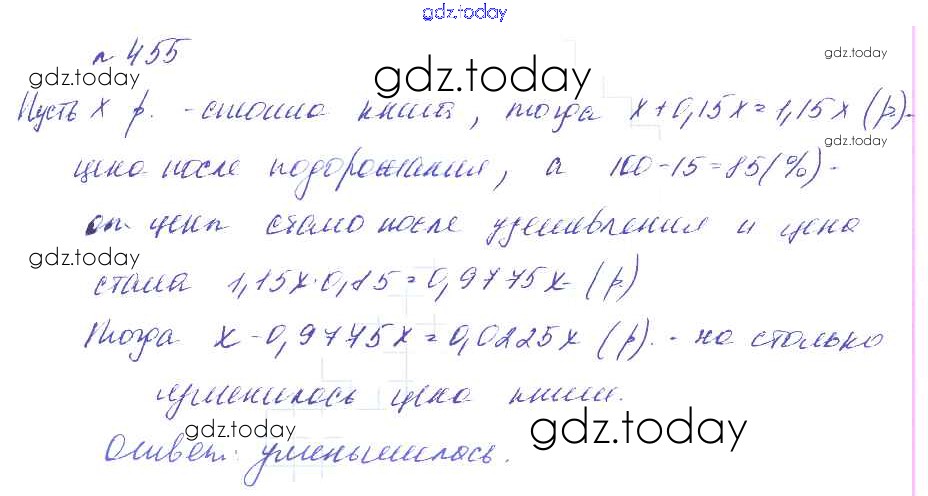 gdz.today
№ 455
gdz.today
gdz.today
gdz.today
Пусть x р. - стоила книга, тогда x + 0,15x = 1,15x (р.) -
gdz.today
цена после подорожания, а 100 - 15 = 85 (%) -
от цены стало после удешевления и цена
gdz.today
стала 1,15x · 0,85 = 0,9775x (р.)
Тогда x - 0,9775x = 0,0225x (р). - на столько
цена книги.
gdz.today
gdz.today
Ответ: уменьшилась.